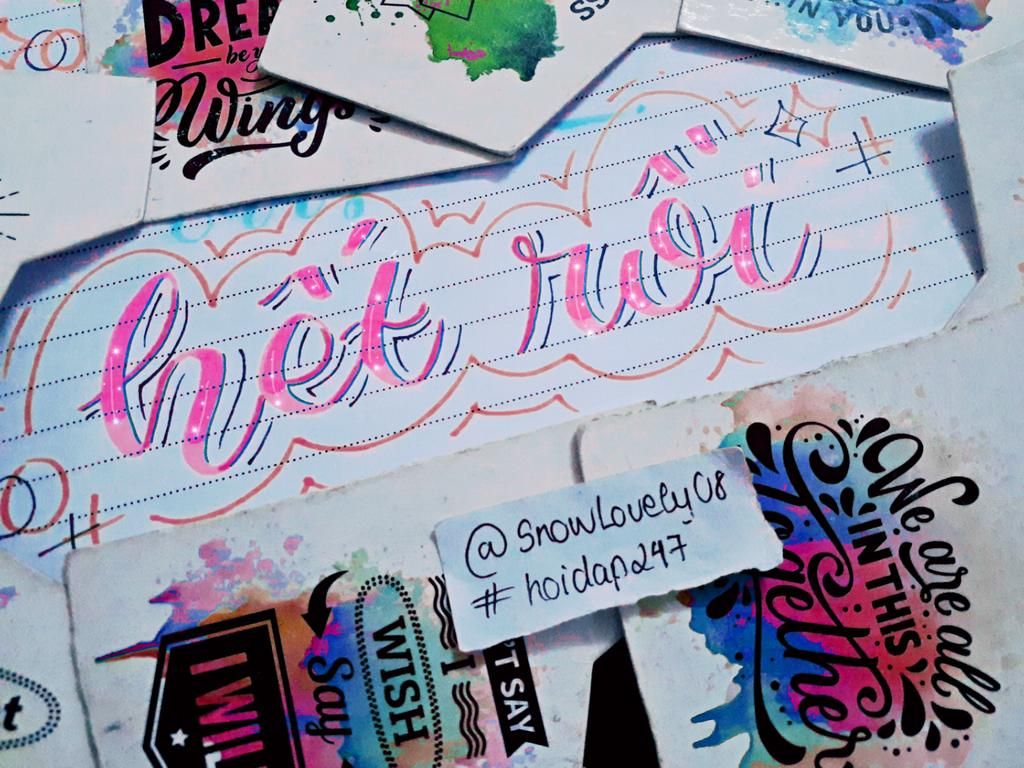 DRE
be y
Wings
SS
IN YOU
hết rồi
@SnowLovely08
#hoidap247
We are all
IN THIS
Together
I WIL
Say
WISH
I
'T SAY
t